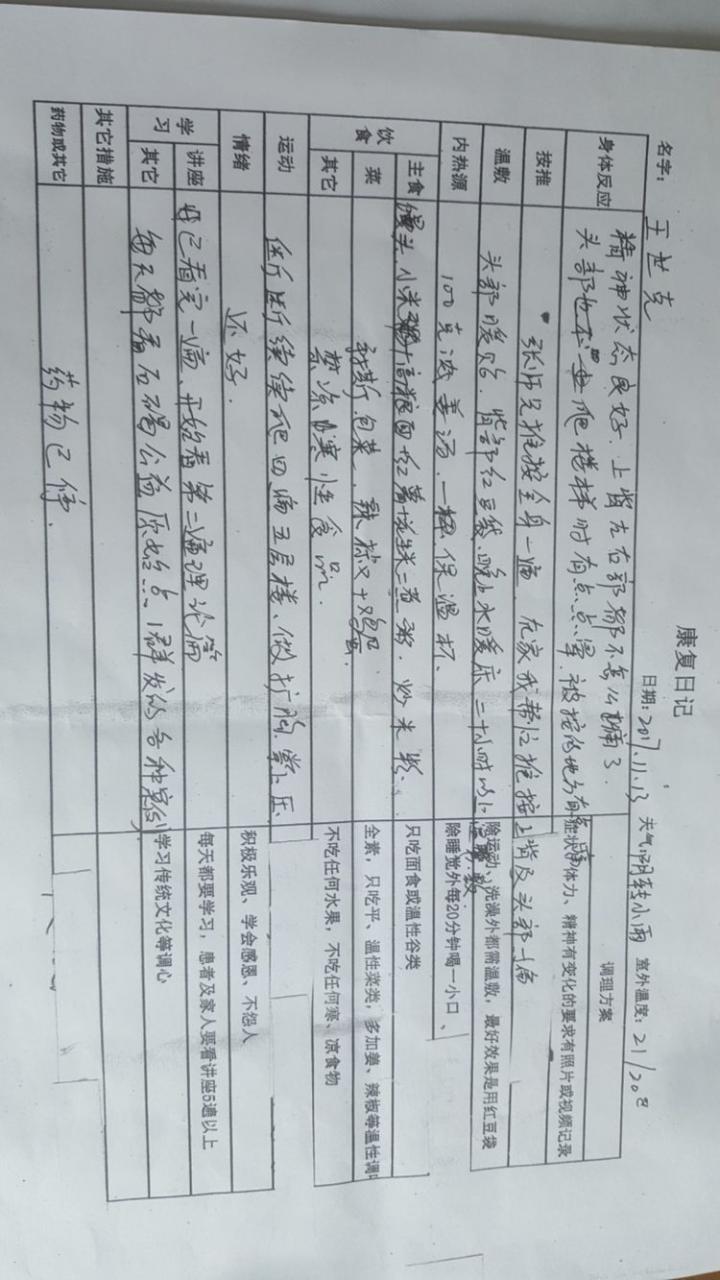 康复日记
名字: 王世克 日期: 2017.11.13 天气: 阴转小雨 室外温度: 21/20
调理方案
身体反应 精神状态良好. 上背左右部都不怎么痛了.
头部也 爬楼梯时有点点晕. 被按的地方有
症状和体力、精神有变化的要求有照片或视频记录
按推 张师兄推按全身一遍. 在家我帮他推按上背及头部一遍
温敷 头部暖贴. 背部红豆袋. 晚上水暖床 二十小时以上
除运动、洗澡外都需温敷，最好效果是用红豆袋
内热源 100克浓姜汤. 保温杯.
除睡觉外每20分钟喝一小口、
饮食 主食 馒头. 小米 高粮面 红薯 粥. 炒米粉.
只吃面食或温性谷类
菜 包菜. 辣椒
全素，只吃平、温性菜类，多加姜、辣椒等温性调
其它 禁凉 寒性食品.
不吃任何水果，不吃任何寒、凉食物
运动 断断续续爬四遍五层楼、做扩胸.
情绪 还好.
积极乐观、学会感恩、不怨人
学习 讲座 已看完一遍、开始看第二遍理论篇
每天都要学习，患者及家人要看讲座5遍以上
其它 每天都看 公益原始点 群发的各种案例
学习传统文化等调心
其它措施
药物或其它 药物已停.